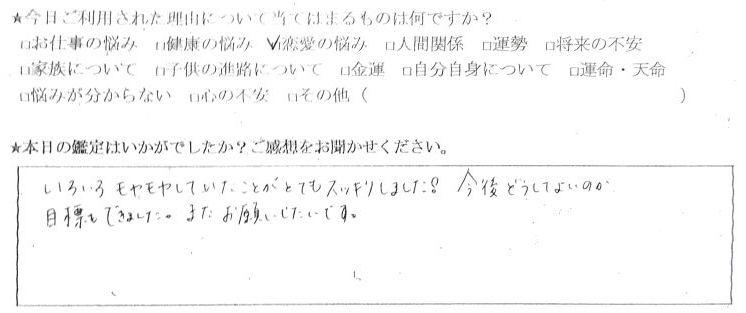 ★今日ご利用された理由について当てはまるものは何ですか?
□お仕事の悩み □健康の悩み ☑恋愛の悩み □人間関係 □運勢 □将来の不安
□家族について □子供の進路について □金運 □自分自身について □運命・天命
□悩みが分からない □心の不安 □その他( )
★本日の鑑定はいかがでしたか?ご感想をお聞かせください。
いろいろモヤモヤしていたことがとてもスッキリしました!! 今後どうしてよいのか
目標もできました。またお願いしたいです。